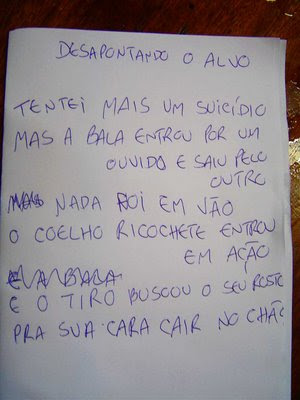 DESAPONTANDO O ALVO
TENTEI MAIS UM SUICÍDIO
MAS A BALA ENTROU POR UM
OUVIDO E SAIU PELO
OUTRO
NADA FOI EM VÃO
O COELHO RICOCHETE ENTROU
EM AÇÃO
E O TIRO BUSCOU O SEU ROSTO
PRA SUA CARA CAIR NO CHÃO